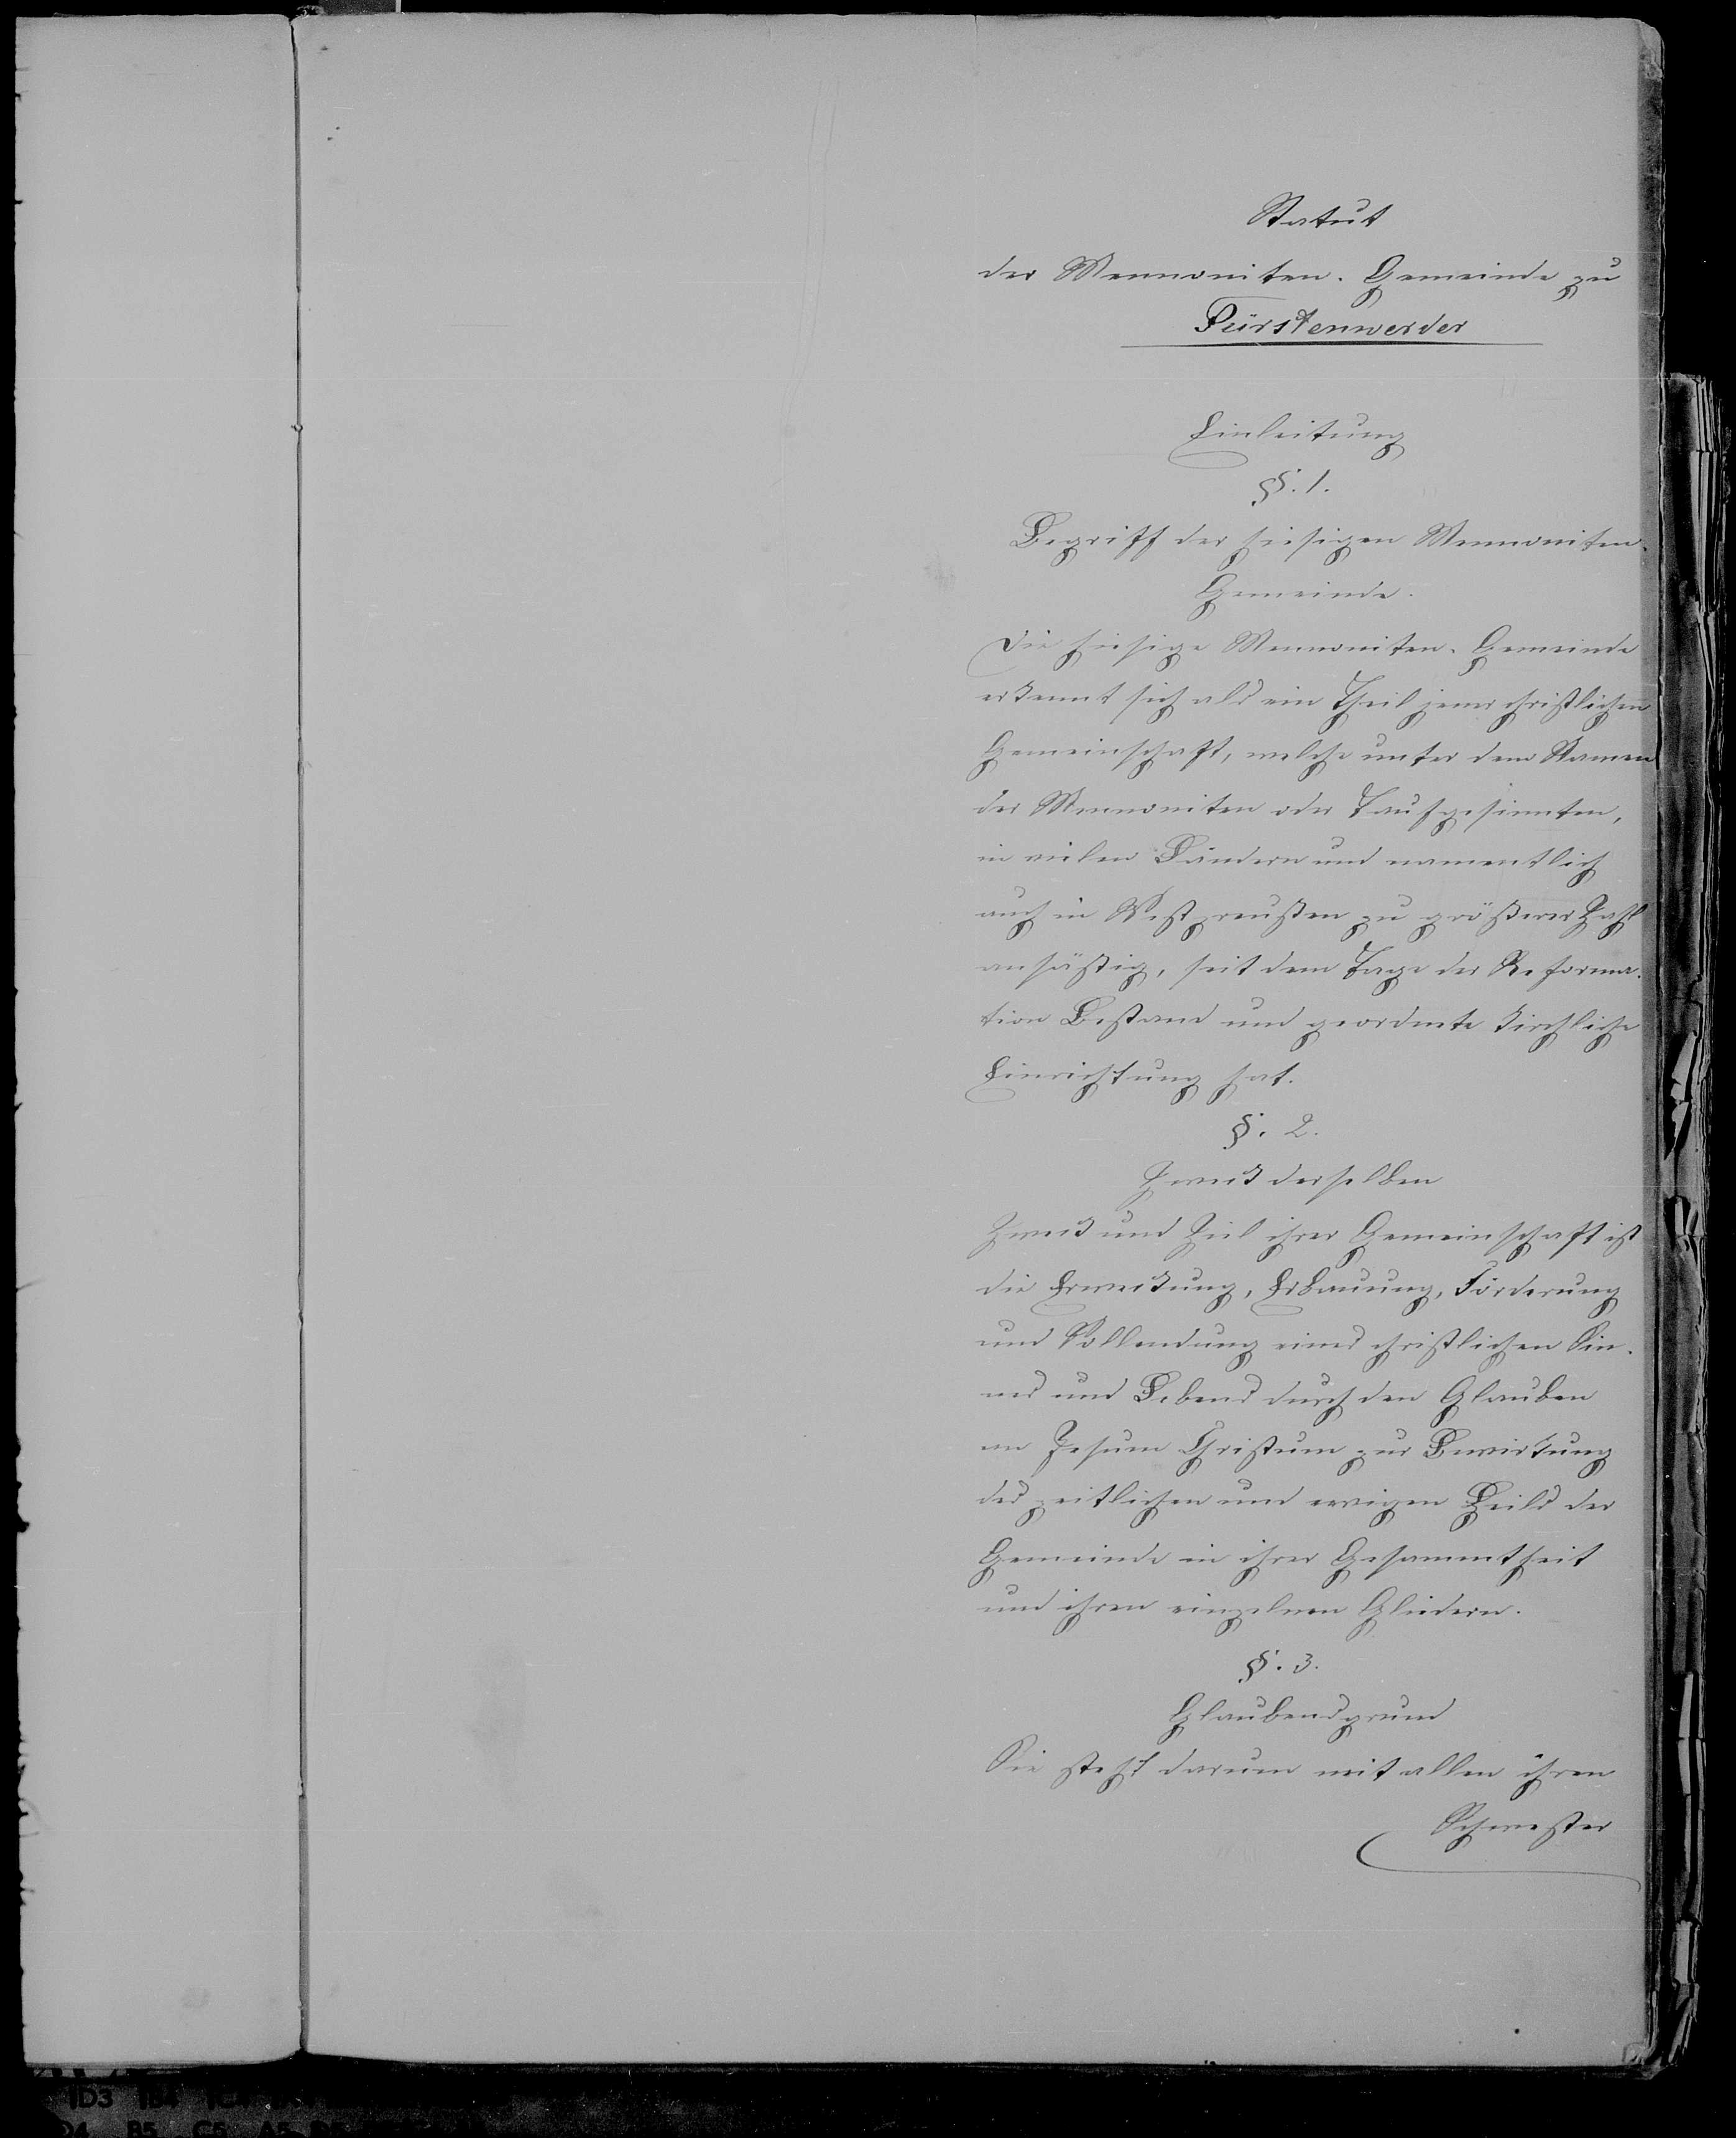 Statut
der Mennoniten-Gemeinde zu
Fürstenwerder
Einleitung
§. 1.
Begriff der hiesigen Mennoniten-
Gemeinde.
Die hiesige Mennoniten-Gemeinde
erkennt sich als ein Theil jener christlichen
Gemeinschaft, welche unter dem Namen
der Mennoniten oder Taufgesinnten,
in vielen Ländern und namentlich
auch in Westpreußen zu größerer Zahl
ansäßig, seit dem Tage der Reforma-
tion Bestand und geordnete kirchliche
Einrichtung hat.
§. 2.
Zweck derselben
Zweck und Ziel ihrer Gemeinschaft ist
die Erweckung, Erbauung, Förderung
und Vollendung eines christlichen Sin-
nes und Lebens durch den Glauben
an Jesum Christum zur Bewirkung
des zeitlichen und ewigen Heils der
Gemeinde in ihrer Gesammtheit
und ihren einzelnen Gliedern.
§. 3.
Glaubensgrund
Sie steht darum mit allen ihren
Schwester